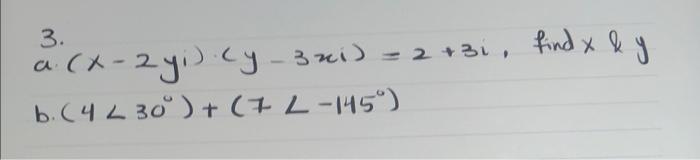 3.
a. (x - 2yi) · (y - 3xi) = 2 + 3i, find x & y
b. (4 ∠ 30°) + (7 ∠ -145°)